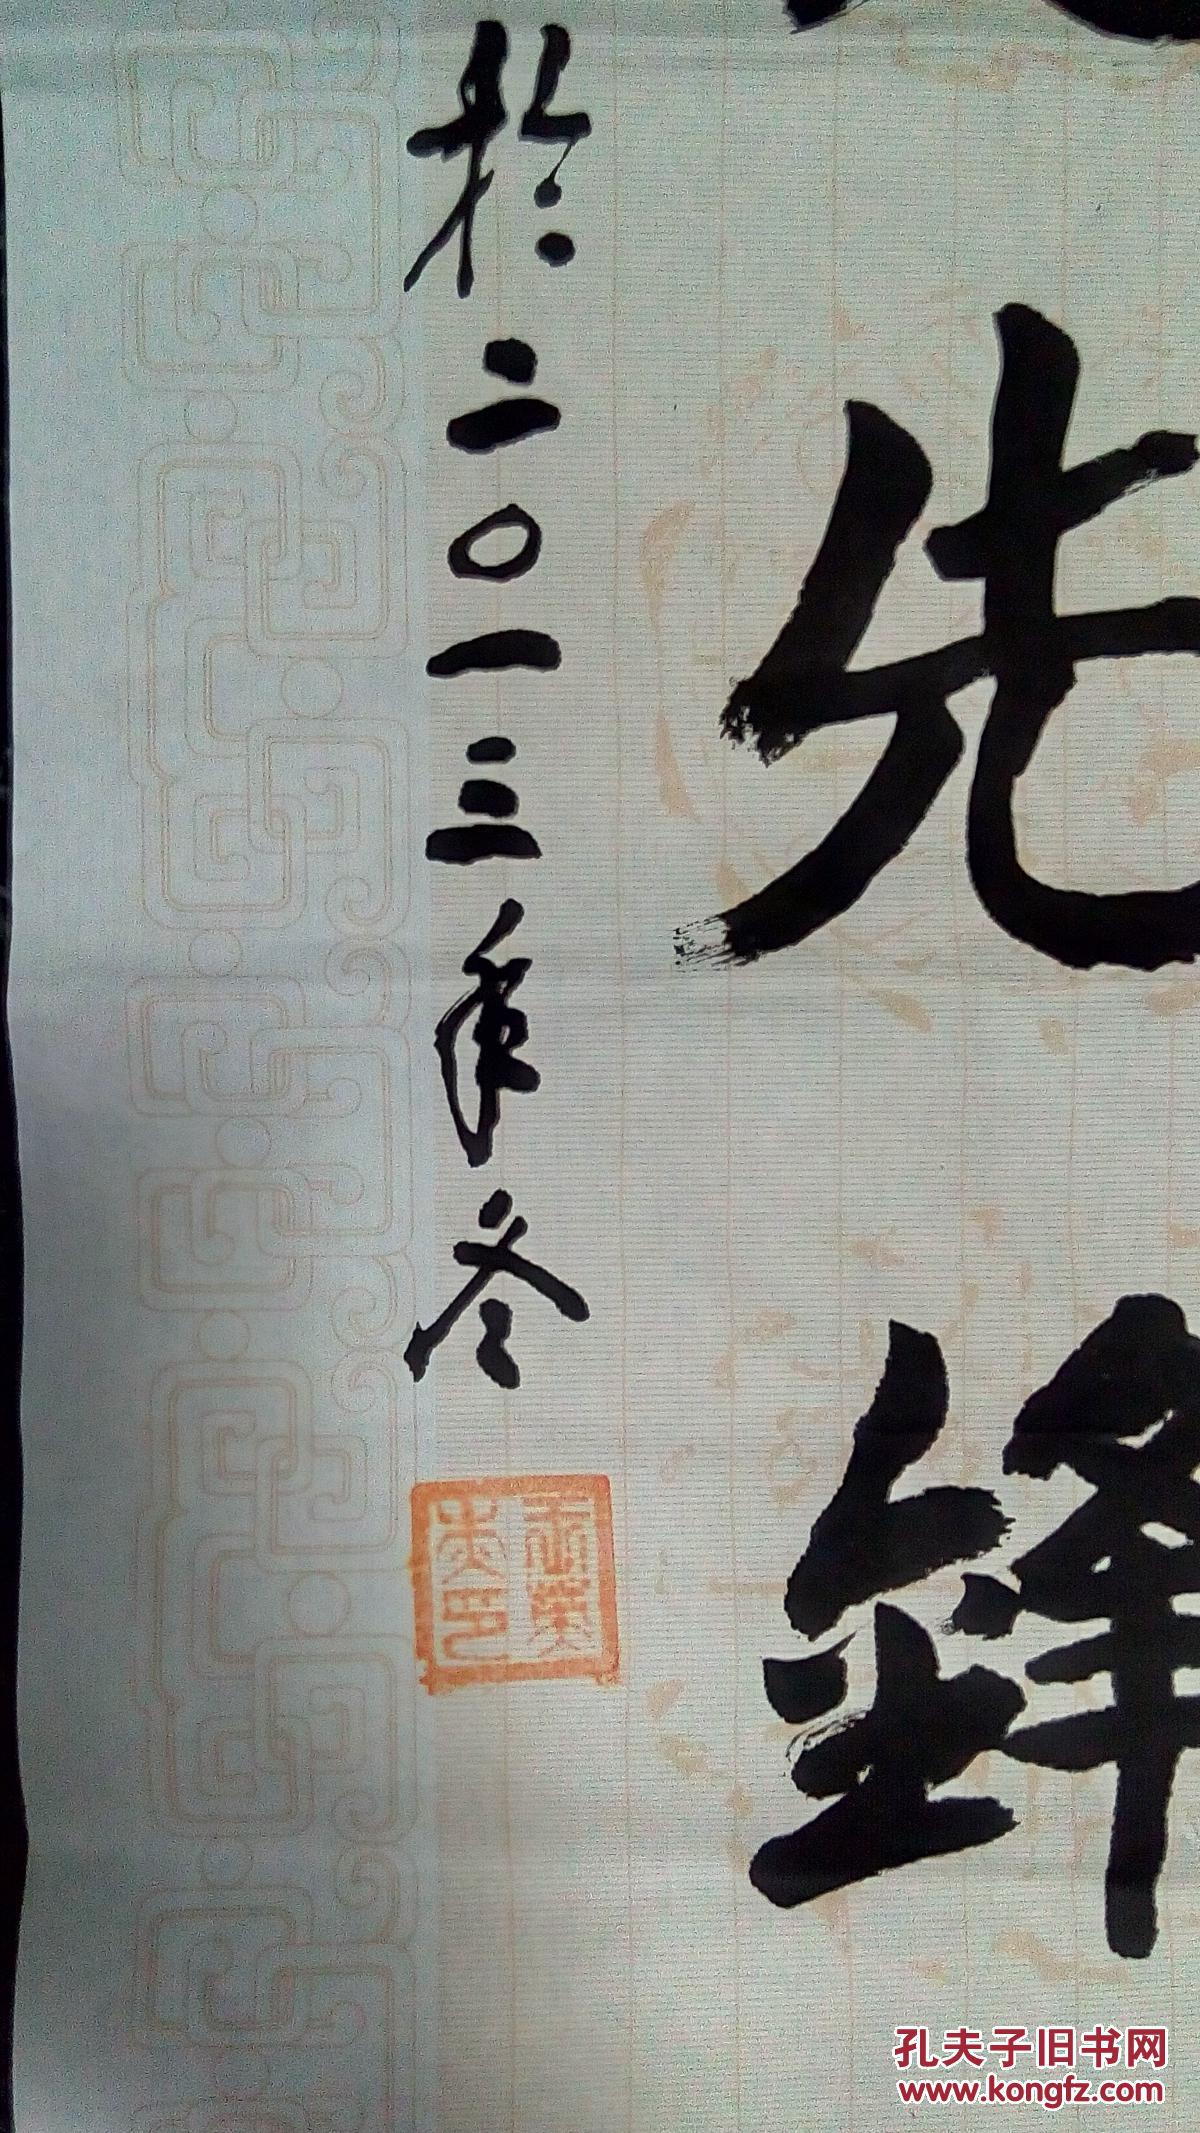 先锋
于二〇一三年冬
孔夫子旧书网
www.kongfz.com